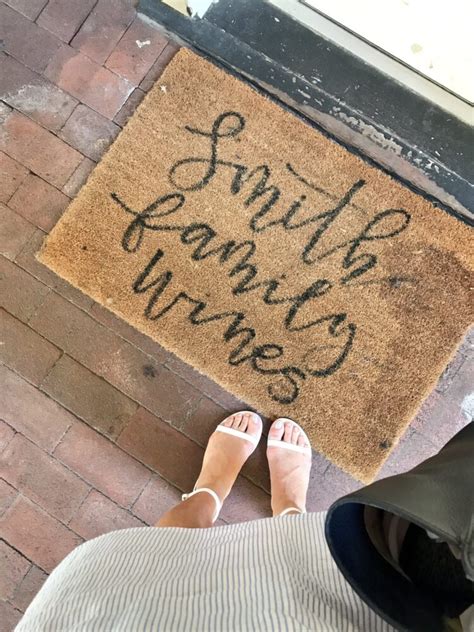 Smith
family
wines